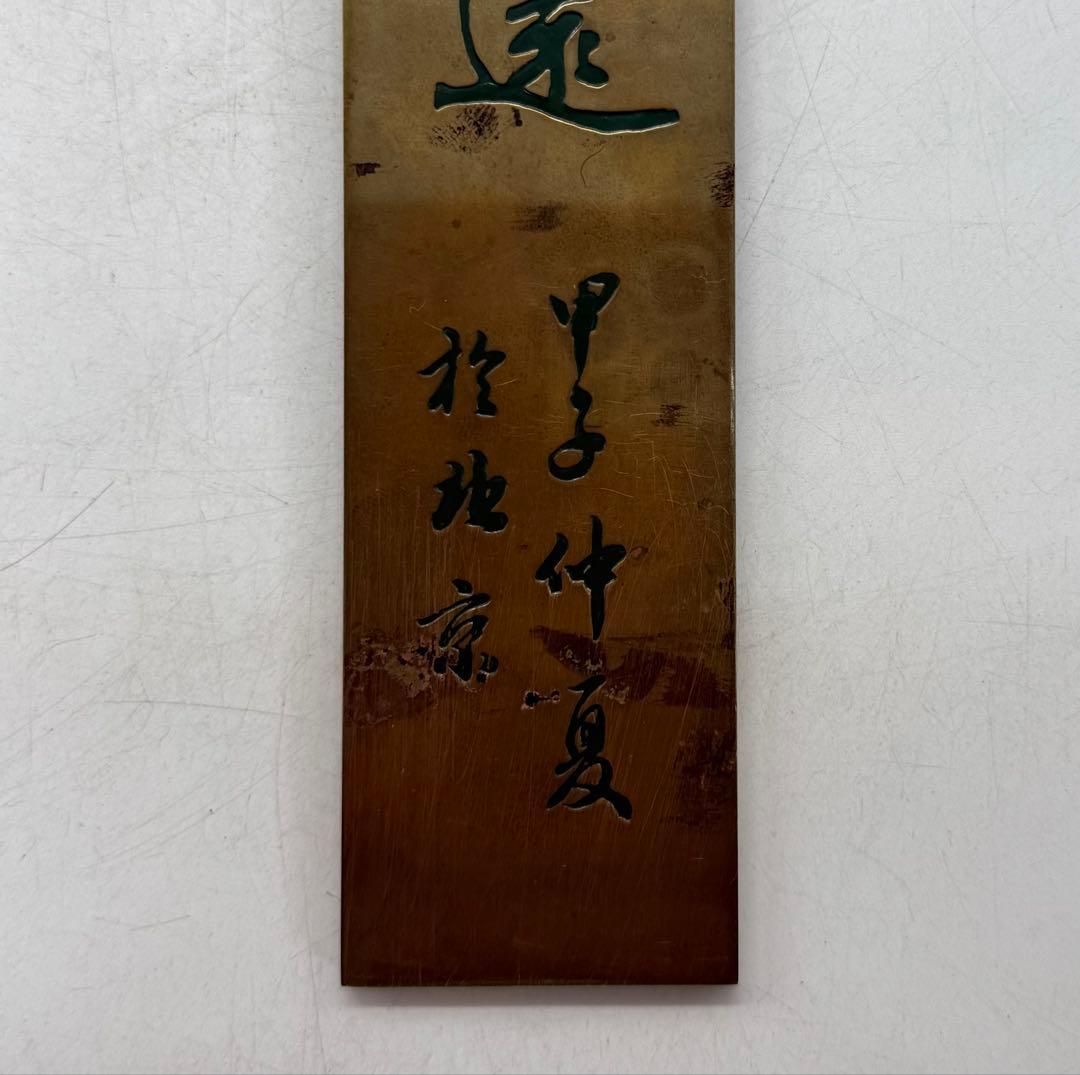 遠
甲子仲夏
於北京